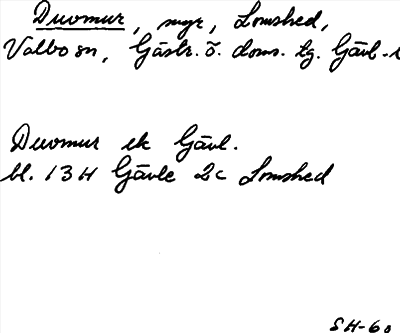 Duvomur, myr, Lomshed,
Valbo sn, Gästr. ö. doms. tg. Gävl-
Duvomur ek Gävl.
bl. 13H Gävle 2c Lomshed
SH-60